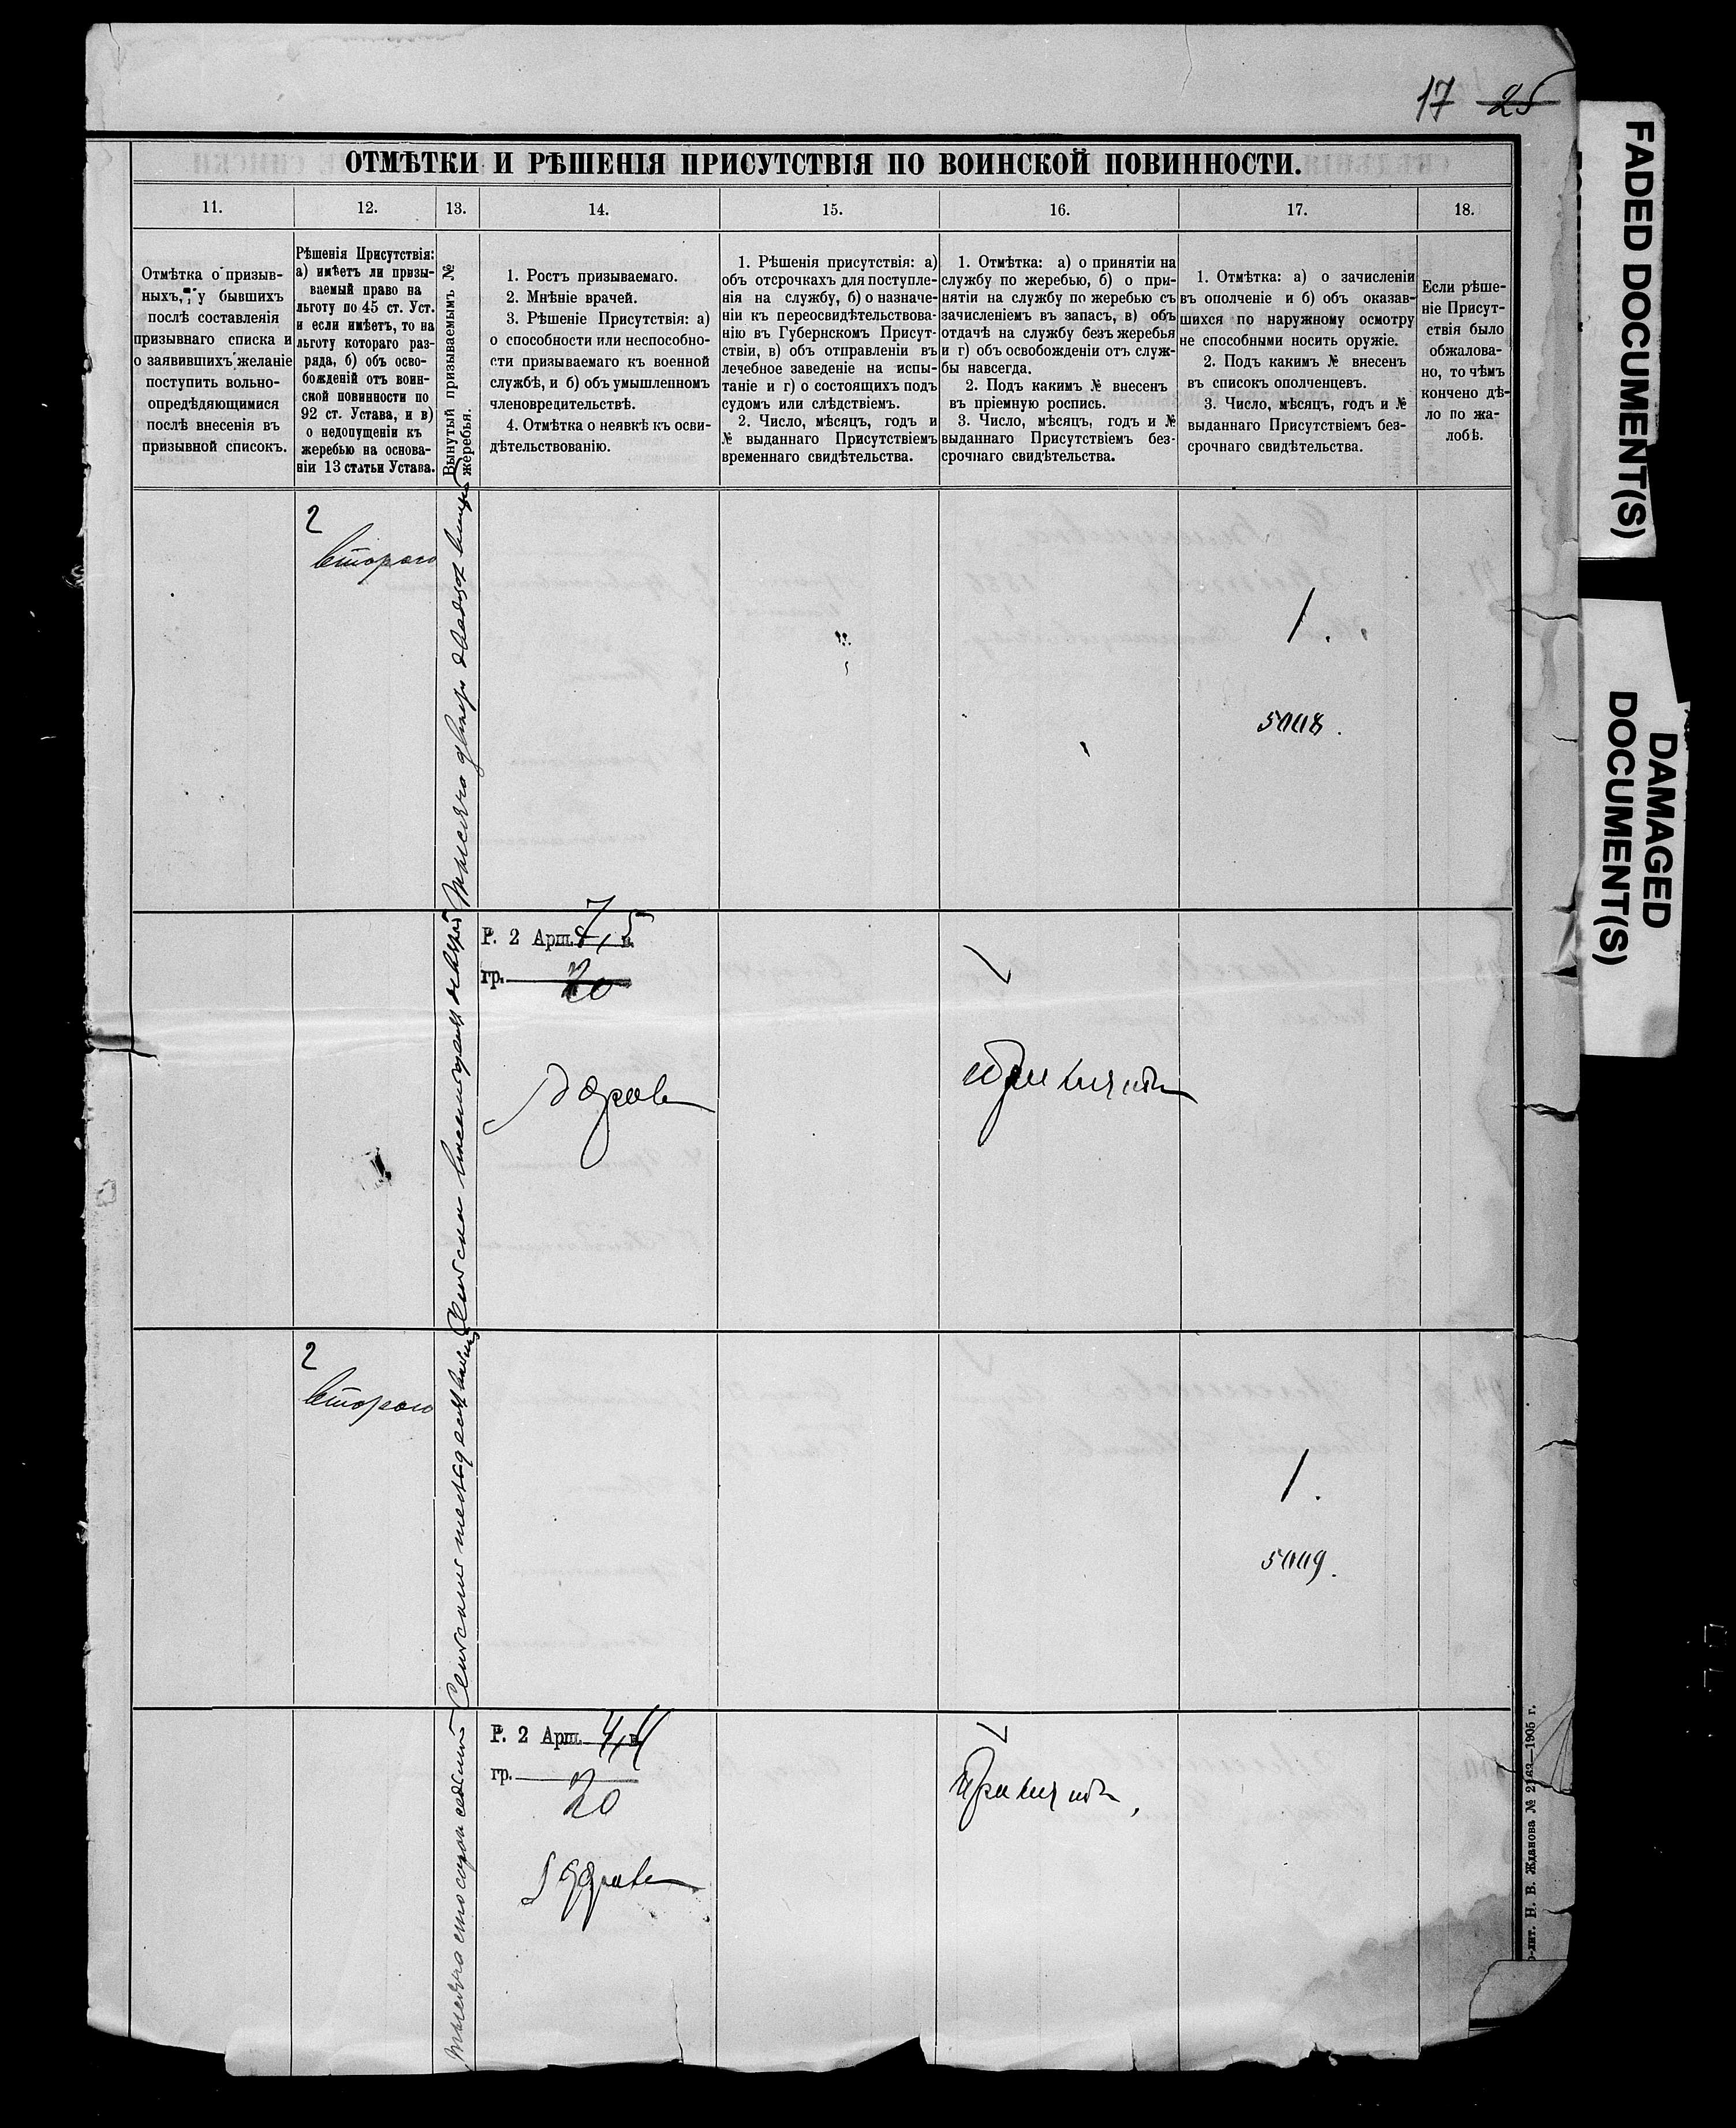 17 25
ОТМѢТКИ И РѢШЕНІЯ ПРИСУТСТВІЯ ПО ВОИНСКОЙ ПОВИННОСТИ.
11.
12.
13.
14.
15.
16.
17.
18.
Отмѣтка о призыв-
ныхъ, у бывшихъ
послѣ составленія
призывнаго списка и
о заявившихъ желаніе
поступить вольно-
опредѣдяющимися
послѣ внесенія въ
призывной списокъ.
Рѣшенія Присутствія:
а) имѣетъ ли призы-
ваемый право на
льготу по 45 ст. Уст.
и если имѣетъ, то на
льготу котораго раз-
ряда, б) объ осво-
божденій отъ воин-
ской повинности по
92 ст. Устава, и в)
о недопущеніи къ
жеребью на основа-
ніи 13 статьи Устава.
Вынутый призываемымъ №
жеребья.
1. Ростъ призываемаго.
2. Мнѣніе врачей.
3. Рѣшеніе Присутствія: а)
о способности или неспособно-
сти призываемаго къ военной
службѣ, и б) объ умышленномъ
членовредительствѣ.
4. Отмѣтка о неявкѣ къ осви-
дѣтельствованію.
1. Рѣшенія присутствія: а)
объ отсрочкахъ для поступле-
нія на службу, б) о назначе-
ніи къ переосвидѣтельствова-
нію въ Губернскомъ Присут-
ствіи, в) объ отправленіи въ
лечебное заведеніе на испы-
таніе и г) о состоящихъ подъ
судомъ или слѣдствіемъ.
2. Число, мѣсяцъ, годъ и
№ выданнаго Присутствіемъ
временнаго свидѣтельства.
1. Отмѣтка: а) о принятіи на
службу по жеребью, б) о при-
нятіи на службу по жеребью съ
зачисленіемъ въ запасъ, в) объ
отдачѣ на службу безъ жеребья
и г) объ освобожденіи отъ служ-
бы навсегда.
2. Подъ какимъ № внесенъ
въ пріемную роспись.
3. Число, мѣсяцъ, годъ и №
выданнаго Присутствіемъ без-
срочнаго свидѣтельства.
1. Отмѣтка: а) о зачисленіи
въ ополченіе и б) объ оказав-
шихся по наружному осмотру
не способными носить оружіе.
2. Подъ какимъ № внесенъ
въ списокъ ополченцевъ.
3. Число, мѣсяцъ, годъ и №
выданнаго Присутствіемъ без-
срочнаго свидѣтельства.
Если рѣше-
ніе Присут-
ствія было
обжалова-
но, то чѣмъ
кончено дѣ-
ло по жа-
лобѣ.
2
второго
1.
Р. 2 Арш. 7,5 в.
гр. 20
Здоров
принять
2
второго
1.
Р. 2 Арш. 4,4 в.
гр. 20
Здоров
принять,
тысяча сто сорок седьмой
о-лит. Н. В. Жданова № 2163—1905 г.
FADED DOCUMENT(S)
DAMAGED
DOCUMENT(S)